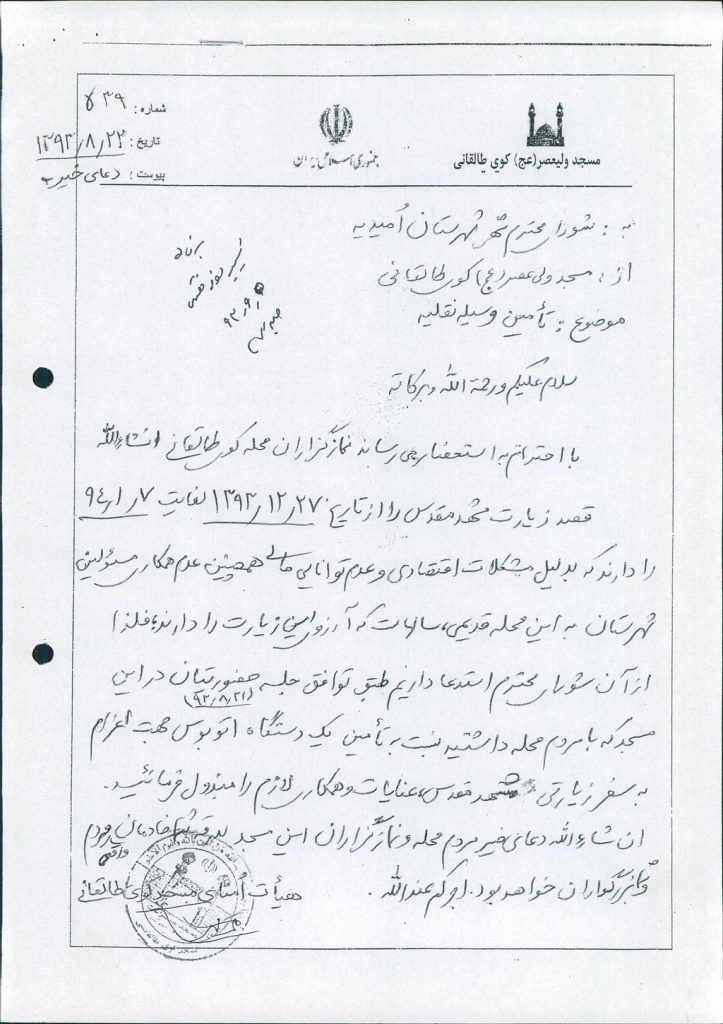 شماره: ۵۳۹
تاریخ: ۱۳۹۳٫۸٫۲۲
پیوست: دعای خیر
جمهوری اسلامی ایران
مسجد ولیعصر(عج) کوی طالقانی
به: شورای محترم شهر شهرستان اُمیدیه
از: مسجد ولی عصر (عج) کوی طالقانی
موضوع: تأمین وسیله نقلیه
سلام علیکم ورحمة الله وبرکاته
با احترام به استحضار می رساند نمازگزاران محله کوی طالقانی انشاءالله
قصد زیارت مشهد مقدس را از تاریخ ۱۳۹۳٫۱۲٫۲۷ لغایت ۹۴٫۱٫۷
را دارند که بدلیل مشکلات اقتصادی و عدم توانایی مالی همچنین عدم همکاری مسئولین
شهرستان به این محله قدیمی، سالهاست که آرزوی این زیارت را دارند، فلذا
از آن شورای محترم استدعا داریم طبق توافق جلسه حضورتان در این
(۹۳٫۸٫۲۱)
مسجد که با مردم محله داشتید نسبت به تأمین یک دستگاه اتوبوس جهت اعزام
به سفر زیارتی مشهد مقدس، عنایات و همکاری لازم را مبذول فرمائید.
ان شاءالله دعای خیر مردم محله و نمازگزاران این مسجد بدرقه خادمان مردم
واقعی
بزرگواران خواهد بود. اجرکم عندالله.
هیأت امنای مسجد کوی طالقانی